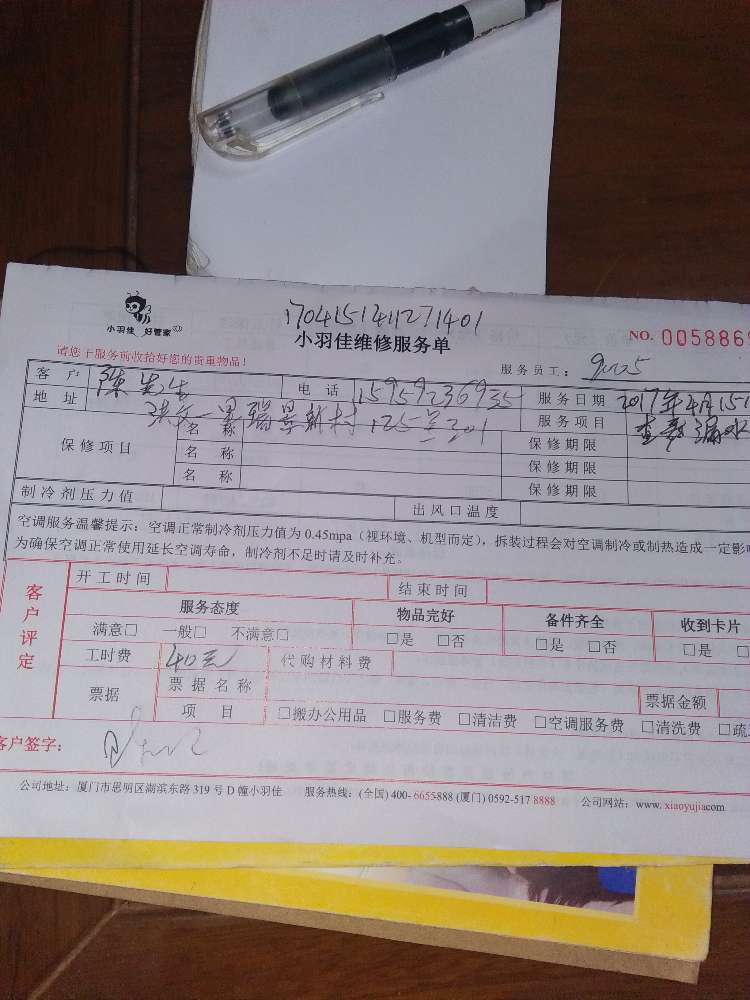 1704151411271401
小羽佳 好管家
小羽佳维修服务单
NO. 0058868
请您于服务前收拾好您的贵重物品!
服务员工:
客 户 陈先生 电 话 15959236935 服务日期 2017年4月15日
地 址 洪文一里瑞景新村125号301 服务项目 查 漏水
保修项目 名 称 保修期限
名 称 保修期限
名 称 保修期限
制冷剂压力值 出风口温度
空调服务温馨提示:空调正常制冷剂压力值为 0.45mpa(视环境、机型而定),拆装过程会对空调制冷或制热造成一定影
为确保空调正常使用延长空调寿命,制冷剂不足时请及时补充。
客户评定
开工时间 结束时间
服务态度 物品完好 备件齐全 收到卡片
满意□ 一般□ 不满意□ □是 □否 □是 □否 □是 □
工时费 40元 代购材料费
票据 票据名称 票据金额
项 目 □搬办公用品 □服务费 □清洁费 □空调服务费 □清洗费 □疏
客户签字:
公司地址:厦门市思明区湖滨东路 319 号 D 幢小羽佳 服务热线:(全国) 400- 6655888 (厦门) 0592-517 8888 公司网站:www.xiaoyujia.com